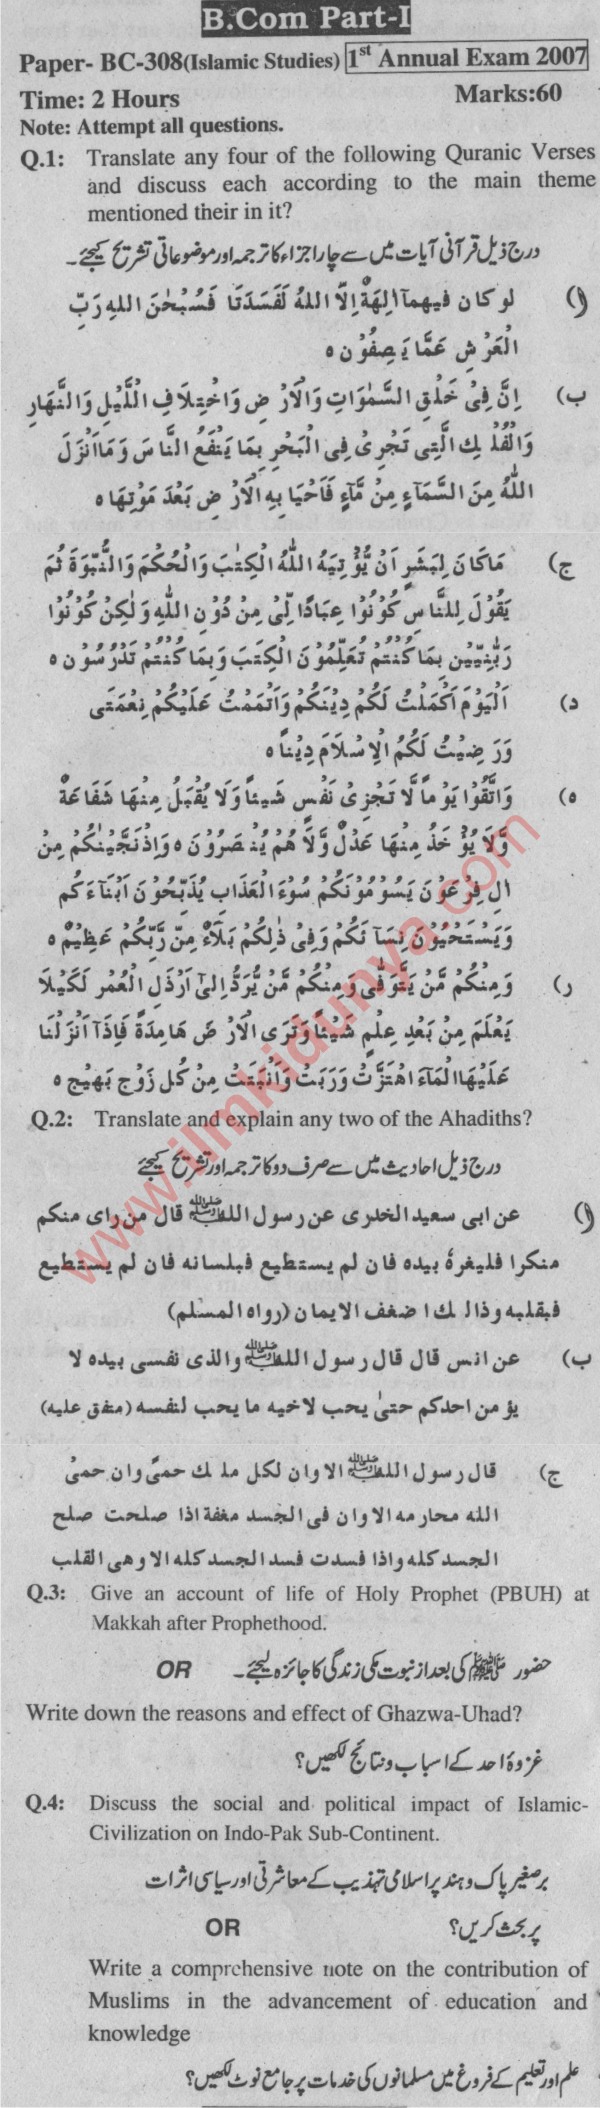 B.Com Part-I
Paper- BC-308(Islamic Studies) 1st Annual Exam 2007
Time: 2 Hours Marks:60
Note: Attempt all questions.
Q.1: Translate any four of the following Quranic Verses
and discuss each according to the main theme
mentioned their in it?
درج ذیل قرآنی آیات میں سے چار اجزاء کا ترجمہ اور موضوعاتی تشریح کیجئے۔
(ا لو كان فيهمآ الِهَةٌ اِلَّا اللهُ لَفَسَدَتَا فَسُبْحٰنَ اللهِ رَبِّ
الْعَرْشِ عَمَّا يَصِفُوْنَ ہ
ب) اِنَّ فِىْ خَلْقِ السَّمٰوٰاتِ وَالْاَرْضِ وَاخْتِلَافِ الَّيْلِ وَالنَّهَارِ
وَالْفُلْكِ الَّتِى تَجْرِىْ فِى الْبَحْرِ بِمَا يَنْفَعُ النَّاسَ وَمَا اَنْزَلَ
اللّٰهُ مِنَ السَّمَاءِ مِنْ مَّاءٍ فَاَحْيَا بِهِ الْاَرْضِ بَعْدَ مَوْتِهَا ہ
ج) مَا كَانَ لِبَشَرٍ اَنْ يُّؤْتِيَهُ اللّٰهُ الْكِتٰبَ وَالْحُكْمَ وَالنُّبُوَّةَ ثُمَّ
يَقُوْلَ لِلنَّاسِ كُوْنُوْا عِبَادًا لِّىْ مِنْ دُوْنِ اللّٰهِ وَلٰكِنْ كُوْنُوْا
رَبّٰنِيّٖيْنَ بِمَا كُنْتُمْ تُعَلِّمُوْنَ الْكِتٰبَ وَبِمَا كُنْتُمْ تَدْرُسُوْنَ ہ
د) اَلْيَوْمَ اَكْمَلْتُ لَكُمْ دِيْنَكُمْ وَاَتْمَمْتُ عَلَيْكُمْ نِعْمَتِى
وَرَضِيْتُ لَكُمُ الْاِسْلَامَ دِيْناً ہ
ہ) وَاتَّقُوْا يَوْماً لَّا تَجْزِىْ نَفْسٍ شَيئاً وَلَا يُقْبَلُ مِنْهَا شَفَاعَةٌ
وَّلَا يُؤْخَذُ مِنْهَا عَدْلٌ وَّلَا هُمْ يُنْصَرُوْنَ ہ وَاِذْ نَجَّيْنٰكُمْ مِنْ
الِ فِرْعَوْنَ يَسُوْمُوْنَكُمْ سُوْءَ الْعَذَابِ يُذَبِّحُوْنَ اَبْنَاءَكُم
وَيَسْتَحْيُوْنَ نِسَآئَكُمْ وَفِىْ ذٰلِكُمْ بَلَاءٌ مِّنْ رَّبِّكُمْ عَظِيْمٌ ہ
ر) وَمِنْكُمْ مَّنْ يَّتَوَفّٰى وَمِنْكُمْ مَّنْ يُّرَدُّ اِلىٰٓ اَرْذَلِ الْعُمُرِ لَكَيْلَا
يَعْلَمَ مِنْ بَعْدِ عِلْمٍ شَيْئاً وَتَرَى الْاَرْضَ هَامِدَةً فَاِذَا اَنْزَلْنَا
عَلَيْهَا الْمَاءَ اهْتَزَّتْ وَرَبَتْ وَاَنْبَتَتْ مِنْ كُلِّ زَوْجٍ بَهِيْجٍ ہ
Q.2: Translate and explain any two of the Ahadiths?
درج ذیل احادیث میں سے صرف دو کا ترجمہ اور تشریح کیجئے
(ا عن ابى سعيد الخدرى عن رسول اللهﷺ قال من راى منكم
منكرا فليغرهٗ بيده فان لم يستطيع فبلسانه فان لم يستطيع
فبقلبه وذالك اضغف الايمان (رواه المسلم)
ب) عن انس قال قال رسول اللهﷺ والذى نفسى بيده لا
يؤمن احدكم حتىٰ يحب لاخيه ما يحب لنفسه (متفق عليه)
ج) قال رسول اللهﷺ الا وان لكل ملك حمىً وان حمىٰ
الله محارمه الا وان فى الجسد مغفة اذا صلحت صلح
الجسد كله واذا فسدت فسد الجسد كله الا وهى القلب
Q.3: Give an account of life of Holy Prophet (PBUH) at
Makkah after Prophethood.
حضور ﷺ کی بعد از نبوت مکی زندگی کا جائزہ لیجئے۔ OR
Write down the reasons and effect of Ghazwa-Uhad?
غزوۂ احد کے اسباب و نتائج لکھیں؟
Q.4: Discuss the social and political impact of Islamic-
Civilization on Indo-Pak Sub-Continent.
برصغیر پاک و ہند پر اسلامی تہذیب کے معاشرتی اور سیاسی اثرات
پر بحث کریں؟ OR
Write a comprehensive note on the contribution of
Muslims in the advancement of education and
knowledge
علم اور تعلیم کے فروغ میں مسلمانوں کی خدمات پر جامع نوٹ لکھیں؟
www.ilmkidunya.com